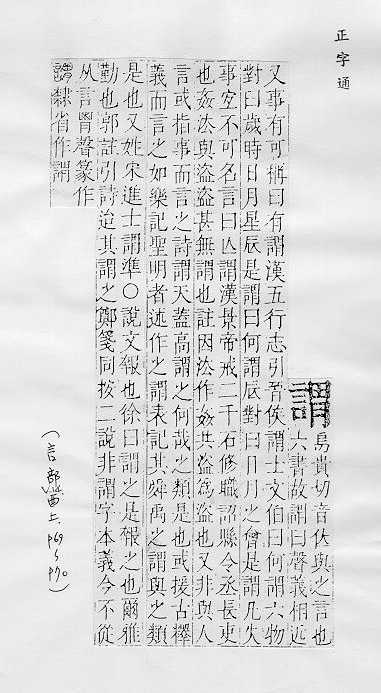 正字通
謂
禺貴切音位與之言也
六書故謂曰聲義相近
又事有可稱曰有謂漢五行志引晉侯謂士文伯曰何謂六物
對曰歲時日月星辰是謂曰何謂辰對曰日月之會是謂凡失
事空不可名言曰亾謂漢景帝戒二千石修職詔縣令丞長吏
也姦法與盜盜甚無謂也註因法作姦共盜爲盜也又非與人
言或指事而言之詩謂天蓋高謂之何哉之類是也或援古釋
義而言之如樂記聖明者述作之謂表記其舜禹之謂與之類
是也又姓宋進士謂準○說文報也徐曰謂之是報之也爾雅
勤也郭註引詩迨其謂之鄭箋同按二說非謂字本義今不從
从言胃聲篆作
謂隸省作謂
(言部酉上、P69~P70)